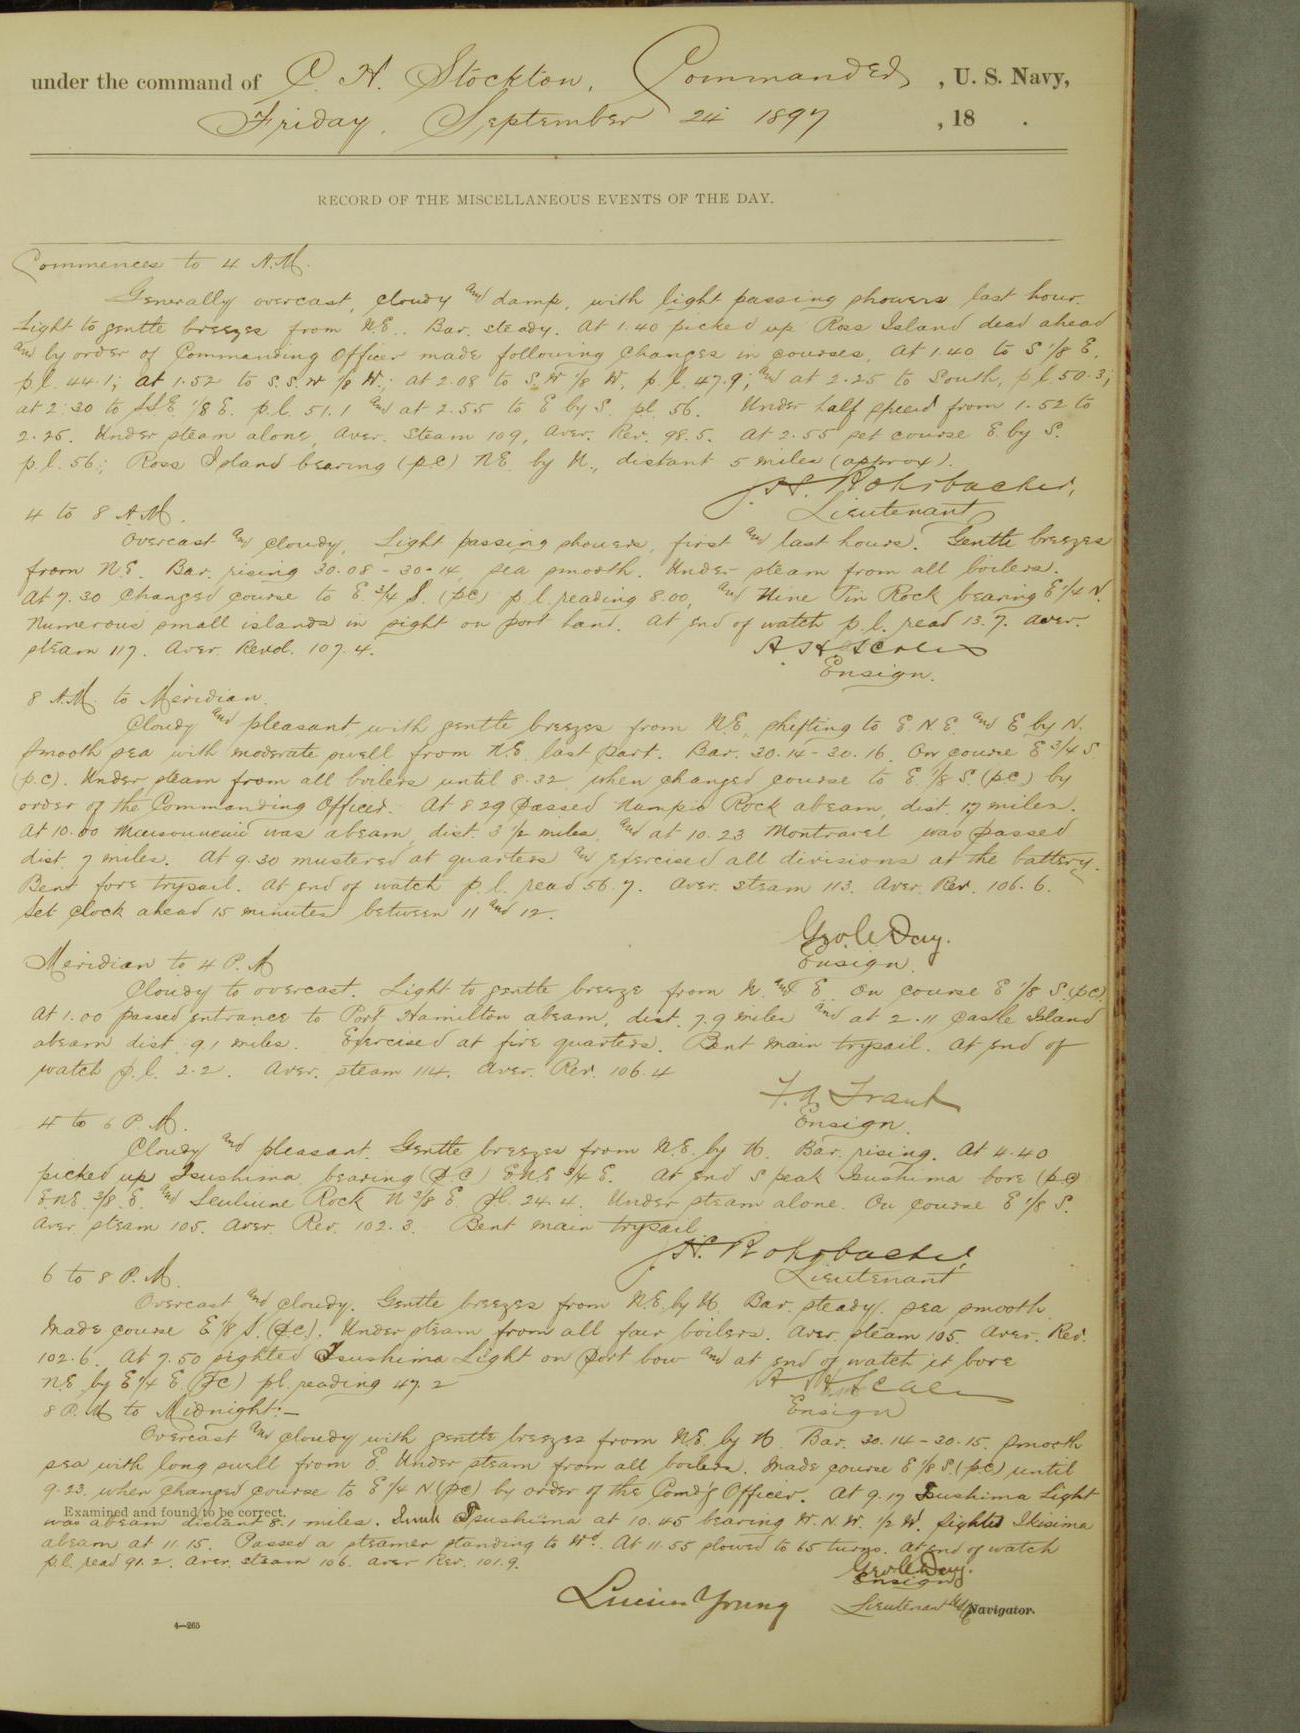 under the command of C. H. Stockton, Commander, U. S. Navy,
Friday, September 24 1897, 18 .
RECORD OF THE MISCELLANEOUS EVENTS OF THE DAY.
Commences to 4 A.M.
Generally overcast, cloudy and damp, with light passing showers last hour.
Light to gentle breezes from N.E. Bar. steady. At 1.40 picked up Ross Island dead ahead
and by order of Commanding Officer made following changes in courses, at 1.40 to S 1/8 E.
p.l. 44.1; at 1.52 to S.S.W 1/8 W.; at 2.08 to S.W 1/8 W. p.l. 47.9; and at 2.25 to South, p.l. 50.3;
at 2.30 to SSE 1/8 E. p.l. 51.1 and at 2.55 to E by S. pl. 56. Under half speed from 1.52 to
2.25. Under steam alone, Aver. Steam 109, Aver. Rev. 98.5. At 2.55 set course E. by S.
p.l. 56; Ross Island bearing (p.c) NE. by N., distant 5 miles (approx).
J.H. Rohrbacher,
Lieutenant
4 to 8 A.M.
Overcast and cloudy, Light passing showers, first and last hours. Gentle breezes
from N.E. Bar. rising 30.08 - 30.14, sea smooth. Under steam from all boilers.
At 7.30 Changed course to E. 3/4 S. (p.c) p.l. reading 8.00, and Nine Pin Rock bearing E 1/4 N.
Numerous small islands in sight on port hand. At end of watch p.l. read 13.7. aver.
steam 117. Aver. Revol. 107.4.
A. H. Scales
Ensign.
8 A.M. to Meridian.
Cloudy and pleasant with gentle breezes from N.E. shifting to E.N.E. and E. by N.
Smooth sea with moderate swell from N.E. last part. Bar. 30.14 - 30.16. On course E 3/4 S
(p.c). Under steam from all boilers until 8.32, when changed course to E. 1/8 S. (p.c) by
order of the Commanding Officer. At 8.29 passed Rock abeam, dist. 17 miles.
At 10.00 was abeam, dist. 3 1/2 miles, and at 10.23 Montravel was passed
dist. 7 miles. At 9.30 mustered at quarters and exercised all divisions at the battery.
Bent fore trysail. At end of watch p.l. read 56.7. Aver. steam 113. Aver. Rev. 106.6.
Set clock ahead 15 minutes between 11 and 12.
Geo. C. Day.
Ensign.
Meridian to 4 P.M
Cloudy to overcast. Light to gentle breeze from N. and E. On course E 1/8 S. (p.c).
At 1.00 passed entrance to Port Hamilton abeam, dist. 7.9 miles and at 2.11 Castle Island
abeam dist. 9.1 miles. Exercised at fire quarters. Bent main trysail. At end of
watch p.l. 2.2. Aver. steam 114. Aver. Rev. 106.4
F. A. Traut
Ensign.
4 to 6 P.M.
Cloudy and pleasant. Gentle breezes from N.E. by N. Bar. rising. At 4.40
picked up Tsushima bearing (p.c) E.N.E 3/4 E. At end S peak Tsushima bore (p.c)
E.N.E. 3/8 E. and Rock N 3/8 E. pl. 24.4. Under steam alone. On course E 1/8 S.
Aver. steam 105. Aver. Rev. 102.3. Bent main trysail.
J.H. Rohrbacher
Lieutenant
6 to 8 P.M.
Overcast and cloudy. Gentle breezes from N.E. by N. Bar. steady. sea smooth
Made course E 1/8 S. (p.c). Under steam from all four boilers. Aver. steam 105. Aver. Rev.
102.6. At 7.50 sighted Tsushima Light on port bow and at end of watch it bore
N.E. by E 1/4 E (p.c) pl. reading 47.2
A. H. Scales
Ensign
8 P.M to Midnight:—
Overcast and cloudy with gentle breezes from N.E. by N. Bar. 30.14 - 30.15. Smooth
sea with long swell from E. Under steam from all boilers. Made course E 1/8 S. (p.c) until
9.23 when changed course to E 1/4 N (p.c) by order of the Comdg Officer. At 9.17 Tsushima Light
Examined and found to be correct.
was abeam distant 8.1 miles. Sunk Tsushima at 10.45 bearing W.N.W. 1/2 W. Sighted Ikisima
abeam at 11.15. Passed a steamer standing to Wd. At 11.55 slowed to 65 turns. At end of watch
p.l. read 91.2. Aver. steam 106. Aver Rev. 101.9.
Geo. C. Day.
Ensign
Lucien Young
Lieutenant Navigator.
4—265